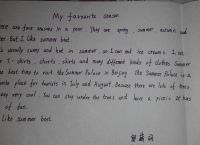 My favourite season
are four seasons in a year. They are spring, summer, autumn and
But I like summer best.
usually sunny and hot in summer, so I can eat ice creams. I can
T-shirts, skirts, shirts and many different kinds of clothes. Summer
best time to visit the Summer Palace in Beijing. The Summer Palace is a
place for tourists in July and August because there are lots of trees
very cool. You can stay under the trees and have a picnic. It has
of fun.
like summer best.